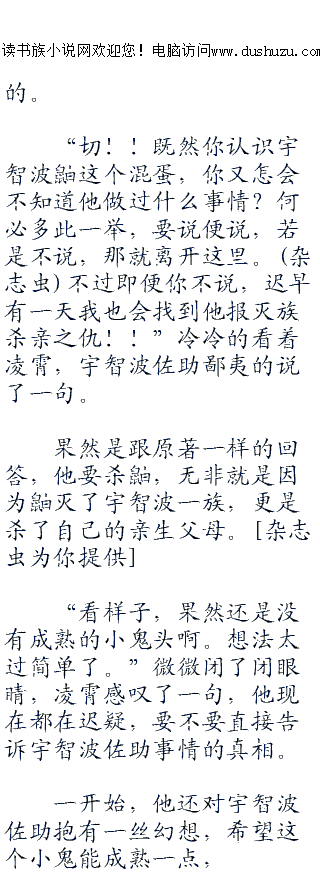 读书族小说网欢迎您！电脑访问www.dushuzu.com
的。
“切！！既然你认识宇
智波鼬这个混蛋，你又怎会
不知道他做过什么事情？何
必多此一举，要说便说，若
是不说，那就离开这里。(杂
志虫)不过即便你不说，迟早
有一天我也会找到他报灭族
杀亲之仇！！”冷冷的看着
凌霄，宇智波佐助鄙夷的说
了一句。
果然是跟原著一样的回
答，他要杀鼬，无非就是因
为鼬灭了宇智波一族，更是
杀了自己的亲生父母。[杂志
虫为你提供]
“看样子，果然还是没
有成熟的小鬼头啊。想法太
过简单了。”微微闭了闭眼
睛，凌霄感叹了一句，他现
在都在迟疑，要不要直接告
诉宇智波佐助事情的真相。
一开始，他还对宇智波
佐助抱有一丝幻想，希望这
个小鬼能成熟一点，